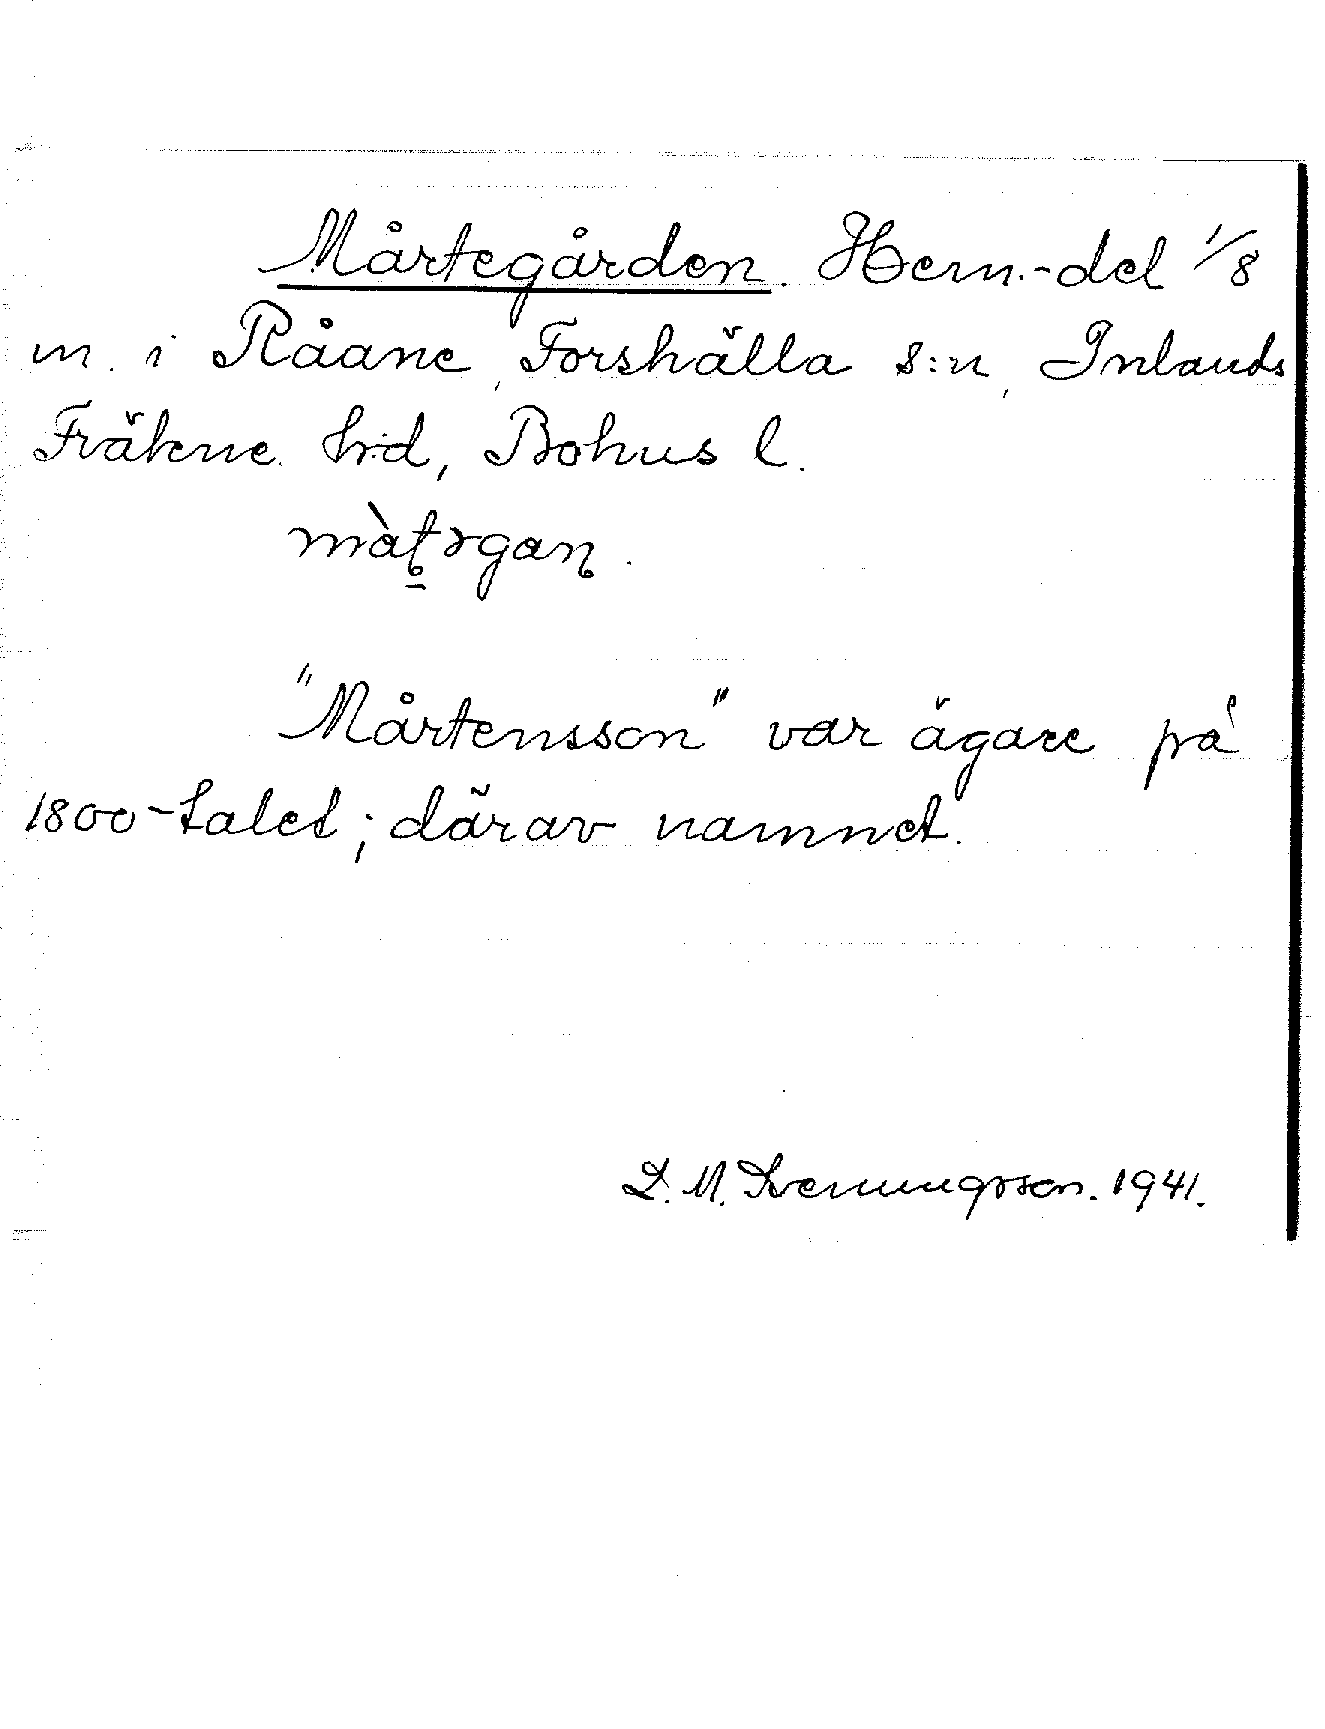 Mårtegården. Hem.-del 1/8
m. i Råane, Forshälla s:n, Inlands
Fräkne hd, Bohus l.
màʈəgaɳ.
"Mårtensson" var ägare på
1800-talet; därav namnet.
D. M. Svenungsson. 1941.